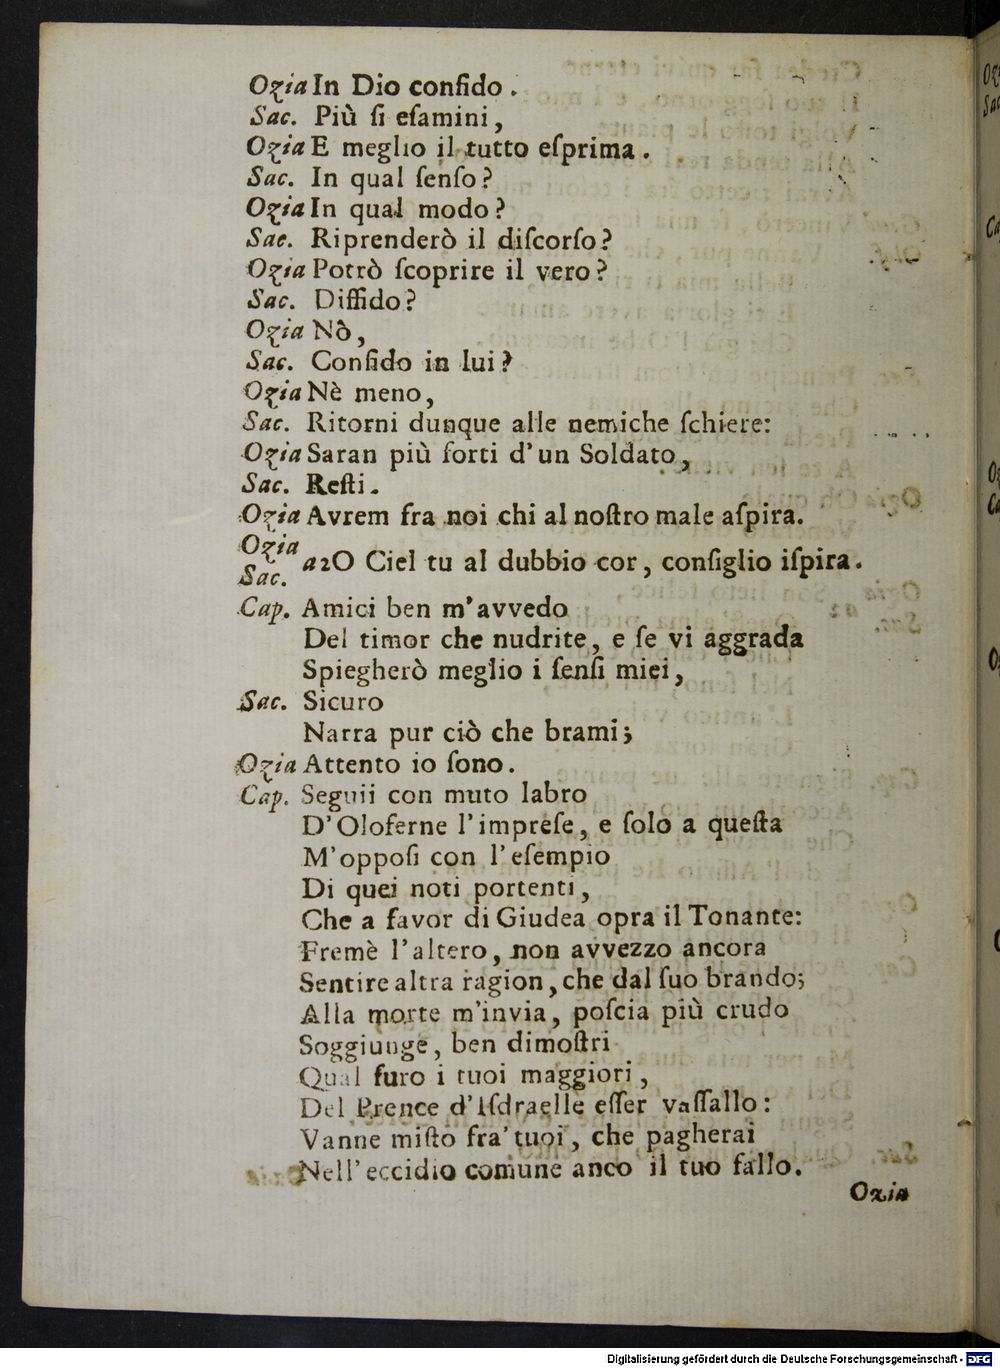 Ozia In Dio confido.
Sac. Più ſi eſamini,
Ozia E meglio il tutto eſprima.
Sac. In qual ſenſo?
Ozia In qual modo?
Sac. Riprenderò il diſcorſo?
Ozia Potrò ſcoprire il vero?
Sac. Diffido?
Ozia Nò,
Sac. Confido in lui?
Ozia Nè meno,
Sac. Ritorni dunque alle nemiche ſchiere:
Ozia Saran più forti d'un Soldato,
Sac. Reſti.
Ozia Avrem fra noi chi al noſtro male aſpira.
Ozia
Sac. a2 O Ciel tu al dubbio cor, conſiglio iſpira.
Cap. Amici ben m'avvedo
Del timor che nudrite, e ſe vi aggrada
Spiegherò meglio i ſenſi miei,
Sac. Sicuro
Narra pur ciò che brami;
Ozia Attento io ſono.
Cap. Seguii con muto labro
D'Oloferne l'impreſe, e ſolo a queſta
M'oppoſi con l'eſempio
Di quei noti portenti,
Che a favor di Giudea opra il Tonante:
Fremè l'altero, non avvezzo ancora
Sentire altra ragion, che dal ſuo brando;
Alla morte m'invia, poſcia più crudo
Soggiunge, ben dimoſtri
Qual furo i tuoi maggiori,
Del Prence d'Iſdraelle eſſer vaſſallo:
Vanne miſto fra' tuoi, che pagherai
Nell'eccidio comune anco il tuo fallo.
Ozia
Digitalisierung gefördert durch die Deutsche Forschungsgemeinschaft - DFG